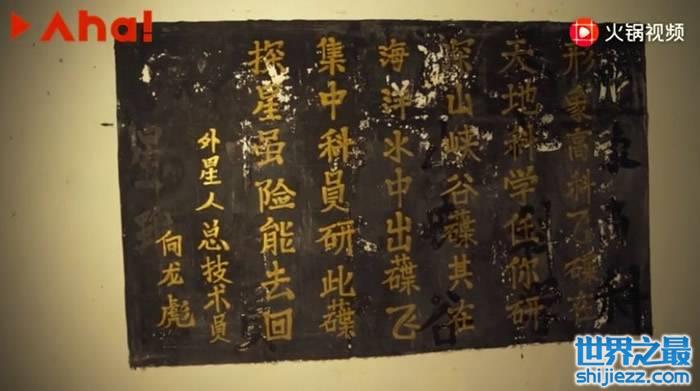 Aha!
火锅视频
形象高科飞碟在
天地科学任你研
深山峡谷碟其在
海洋水中出碟飞
集中科员研此碟
探星虽险能去回
外星人总技术员
向龙彪
世界之最
shijiezz.com